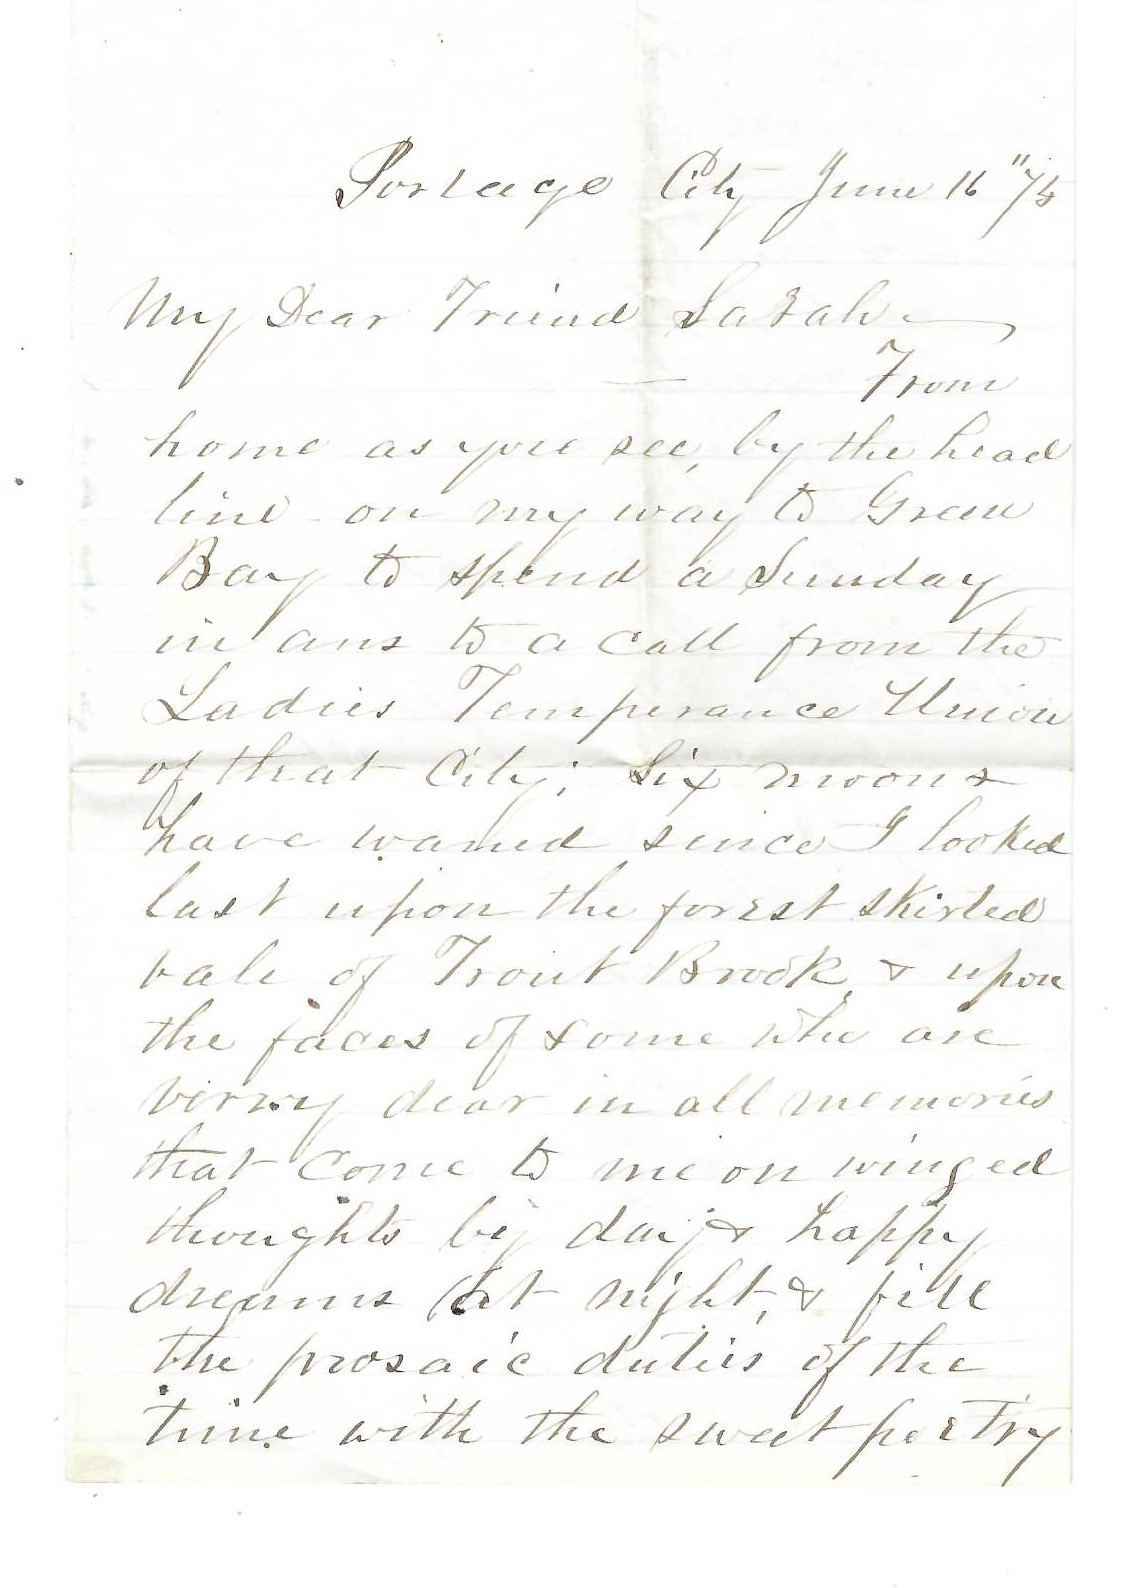 Portage City June 16" 75
My Dear Friend Sarah —
From
home as you see, by the head
line - on my way to Green
Bay to spend a Sunday
in ans to a call from the
Ladies Temperance Union
of that City; Six moons
have waned since I looked
last upon the forest skirted
vale of Trout Brook, & upon
the faces of some who are
verry dear in all memories
that come to me on winged
thoughts by day & happy
dreams at night, & fill
the prosaic duties of the
time with the sweet poetry